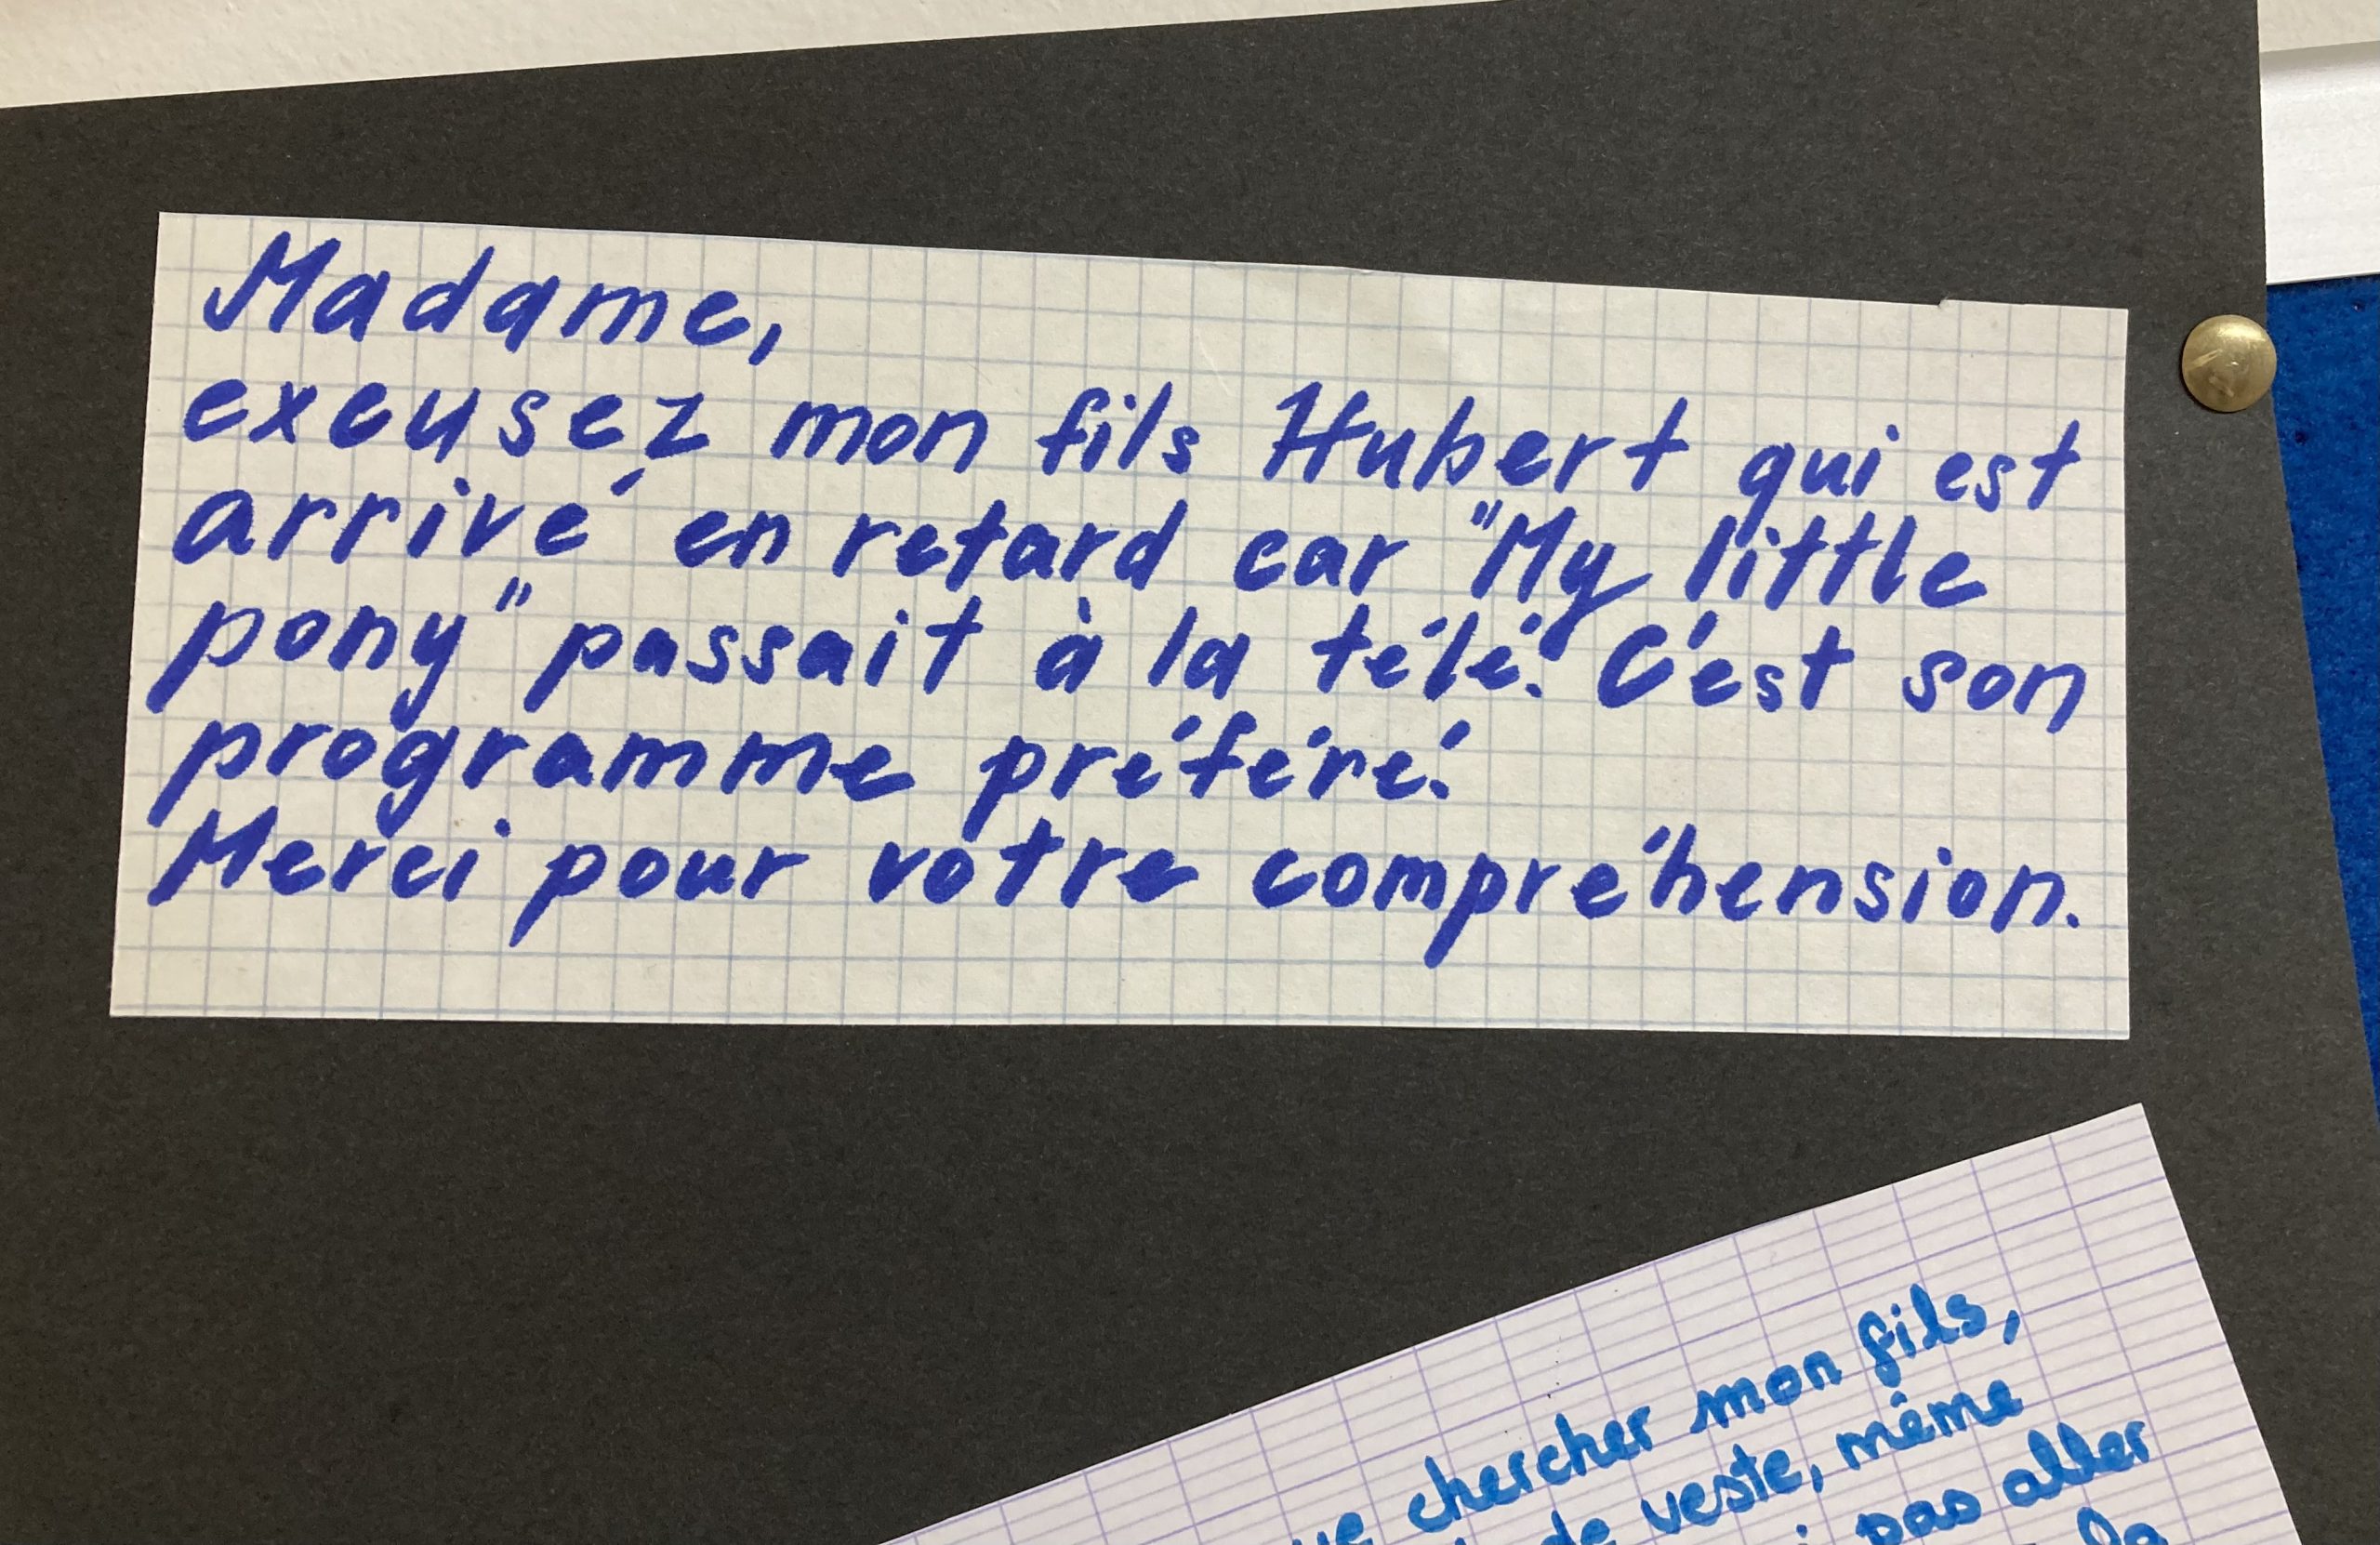 Madame,
excusez mon fils Hubert qui est
arrivé en retard car "My little
pony" passait à la télé. C'est son
programme préféré.
Merci pour votre compréhension.
chercher mon fils,
de veste, même
pas aller
la